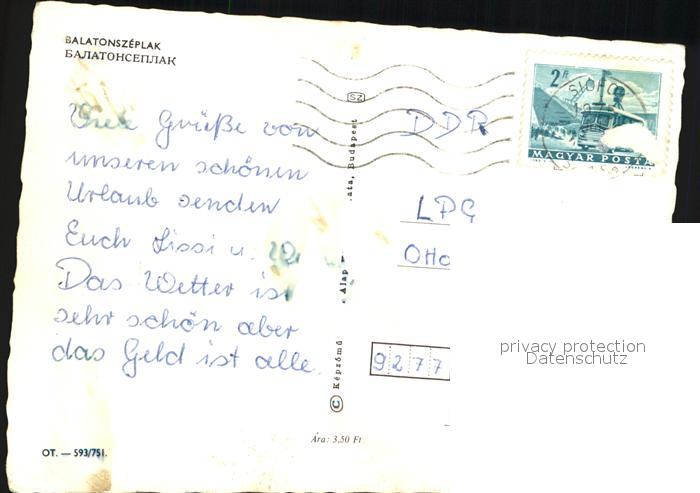 BALATONSZÉPLAK
БАЛАТОНСЕПЛАК
Viele Grüße von
unseren schönen
Urlaub senden
Euch Sissi u.
Das Wetter ist
sehr schön aber
das Geld ist alle.
OT. — 593/751.
SZ
ata, Budapest
Alap
© Képzőmű
Ára: 3,50 Ft
2 Ft
SIÓFOK
MAGYAR POSTA
DDR
LPG
Otto
9277
privacy protection
Datenschutz